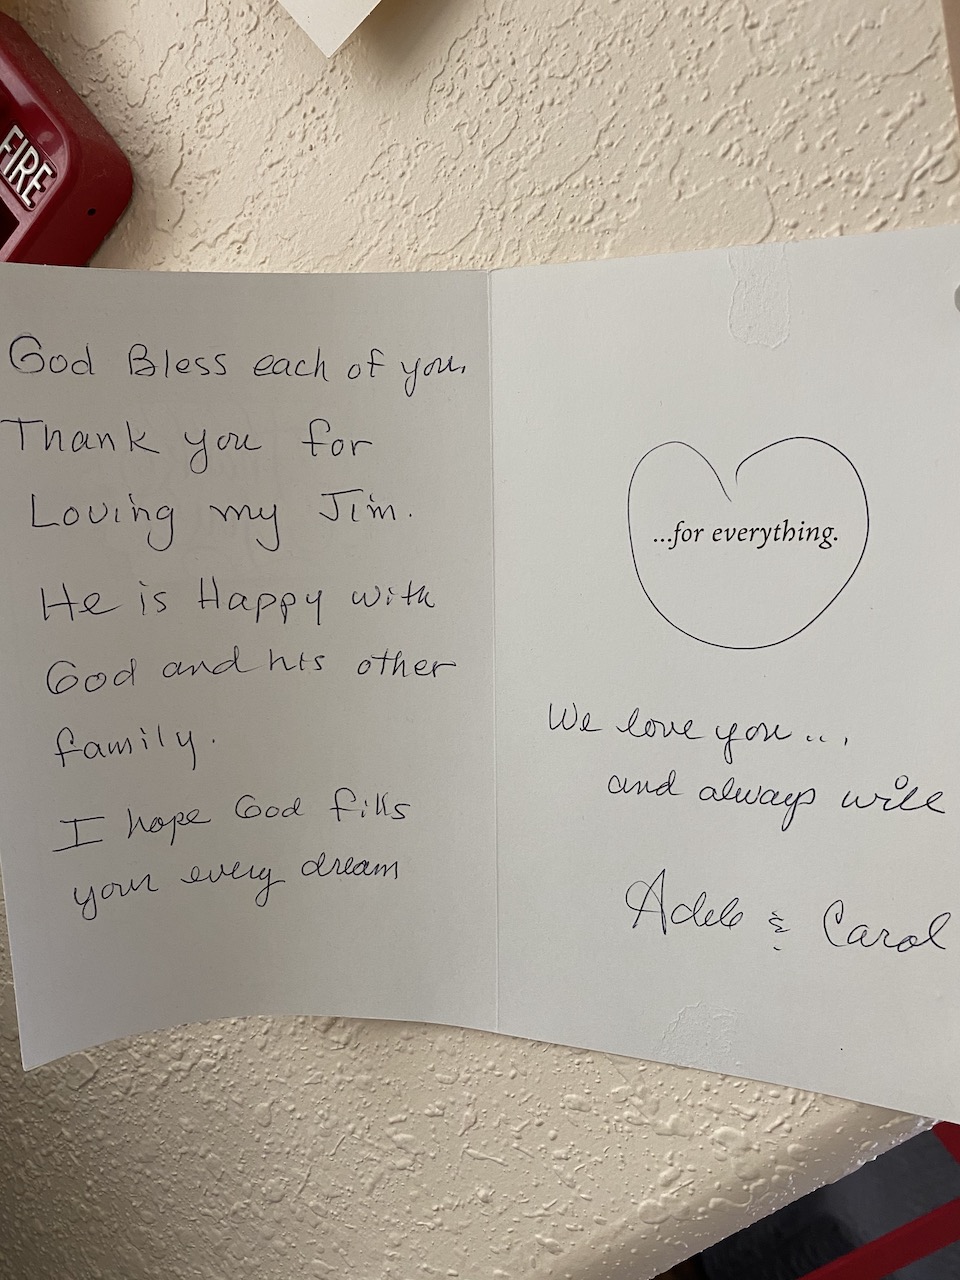 FIRE
God Bless each of you.
Thank you for
Loving my Jim.
He is Happy with
God and his other
family.
I hope God fills
your every dream
...for everything.
We love you...
and always will
Adele & Carol